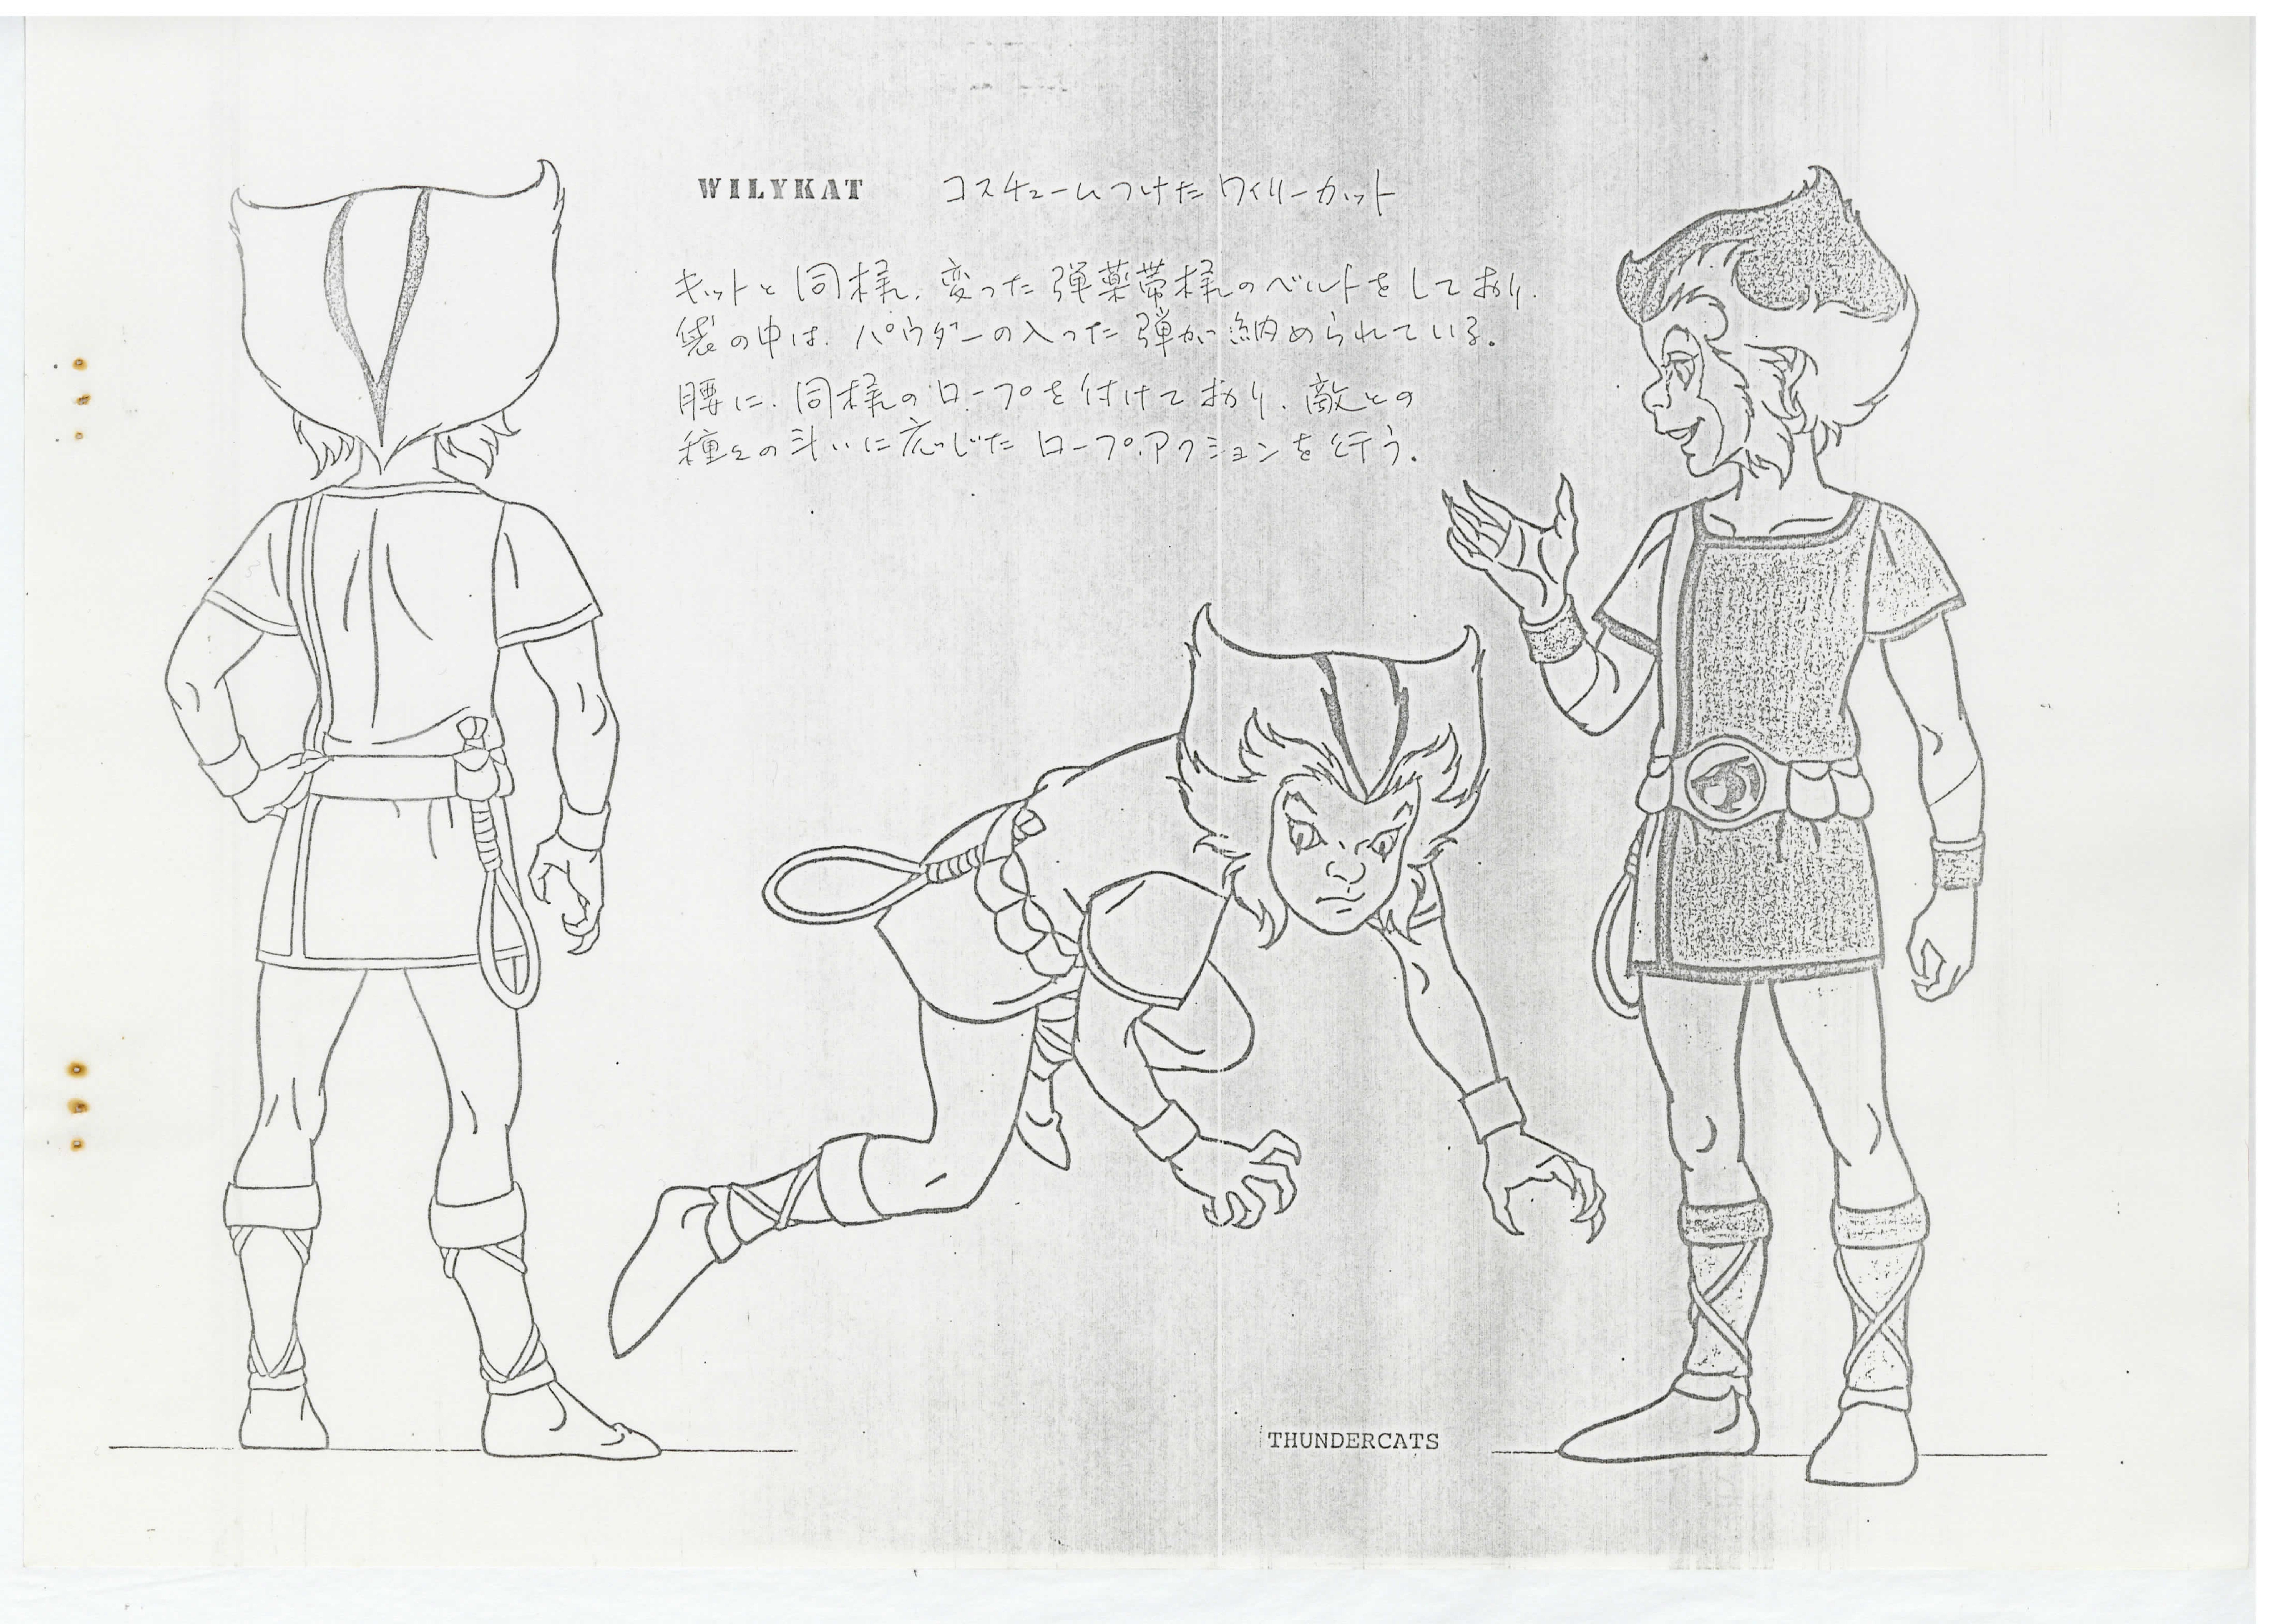 WILYKAT コスチュームつけたワイリーカット
キットと同様、変った弾薬帯様のベルトをしており、
袋の中は、パウダーの入った弾が納められている。
腰に、同様のロープを付けており、敵との
種々の斗いに応じたロープ・アクションを行う。
THUNDERCATS